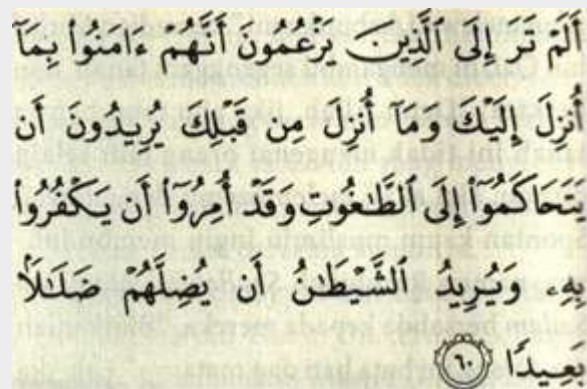 أَلَمْ تَرَ إِلَى ٱلَّذِينَ يَزْعُمُونَ أَنَّهُمْ ءَامَنُوا۟ بِمَآ
أُنزِلَ إِلَيْكَ وَمَآ أُنزِلَ مِن قَبْلِكَ يُرِيدُونَ أَن
يَتَحَاكَمُوٓا۟ إِلَى ٱلطَّٰغُوتِ وَقَدْ أُمِرُوٓا۟ أَن يَكْفُرُوا۟
بِهِۦ وَيُرِيدُ ٱلشَّيْطَٰنُ أَن يُضِلَّهُمْ ضَلَٰلًۢا
بَعِيدًا ٦٠